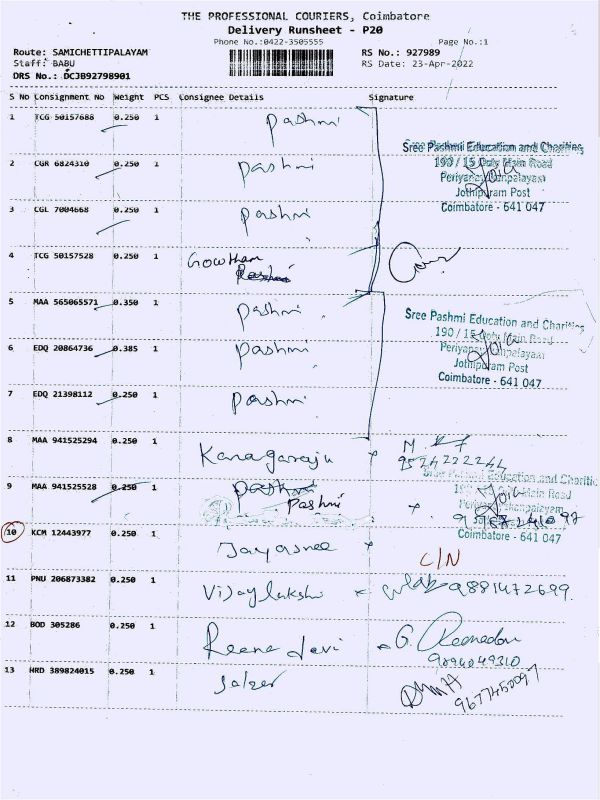 THE PROFESSIONAL COURIERS, Coimbatore
Delivery Runsheet - P20
Phone No.:0422-3505555
Page No.:1
Route: SAMICHETTIPALAYAM
RS No.: 927989
Staff: BABU
RS Date: 23-Apr-2022
DRS No.: DCJB92798901
S No Consignment No Weight PCS Consignee Details Signature
1 TCG 50157688 0.250 1 Pashmi
Sree Pashmi Education and Charities
190 / 15 Main Road
2 CGR 6824310 0.250 1 Pashmi
Jothipuram Post
Coimbatore - 641 047
3 CGL 7004668 0.250 1 Pashmi
4 TCG 50157528 0.250 1 Gowtham
5 MAA 565065571 0.350 1 Pashmi
Sree Pashmi Education and Charities
190 / 15 Main Road
6 EDQ 20864736 0.385 1 Pashmi
Jothipuram Post
Coimbatore - 641 047
7 EDQ 21398112 0.250 1 Pashmi
8 MAA 941525294 0.250 1 Kanagaraju
9524222244
9 MAA 941525528 0.250 1 Pashmi
Pashmi
Education and Charities
Main Road
Coimbatore - 641 047
10 KCM 12443977 0.250 1 Jayasree
C/N
11 PNU 206873382 0.250 1 Vijaylakshmi 9881472699
12 BOD 305286 0.250 1 Reena devi G. Reenadevi
9894049310
13 HRD 389824015 0.250 1